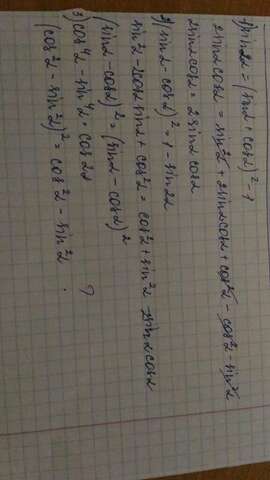 1) sin2α = (sinα + cosα)² - 1
2sinαcosα = sin²α + 2sinαcosα + cos²α - cos²α - sin²α
2sinαcosα = 2sinαcosα
2) (sinα - cosα)² = 1 - sin2α
sin²α - 2cosα sinα + cos²α = cos²α + sin²α - 2sinαcosα
(sinα - cosα)² = (sinα - cosα)²
3) cos⁴α - sin⁴α = cos2α ?
(cos²α - sin²α)² = cos²α - sin²α.